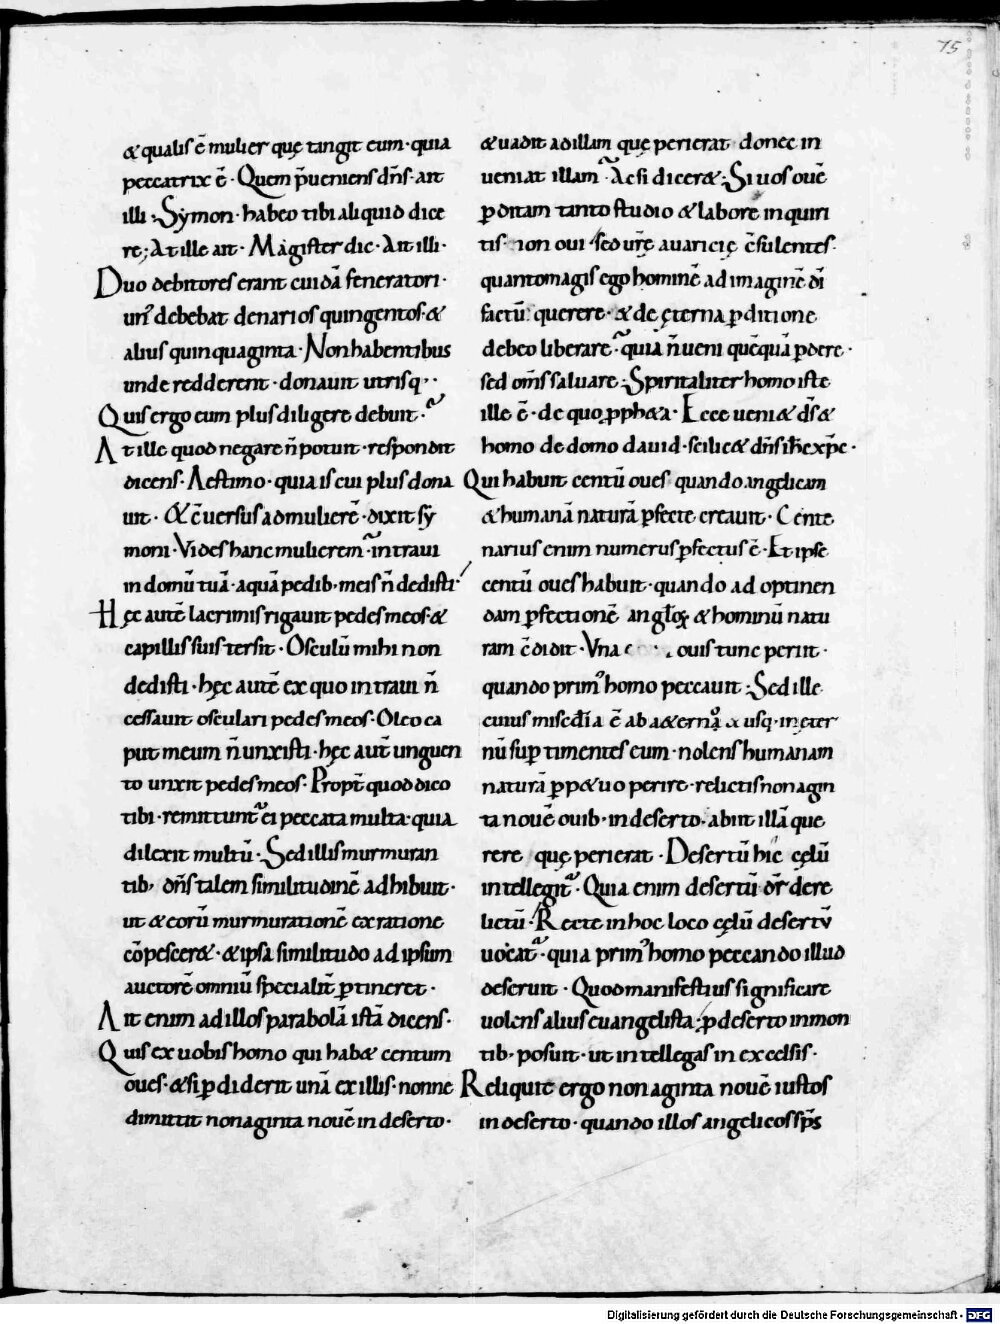 75
& qualis ē mulier quę tangit eum · quia
peccatrix ē · Quem p̄ueniens dn̄s · ait
illi · Symon · habeo tibi aliquid dice
re; At ille ait · Magister dic · Ait illi ·
Duo debitores erant cuidā feneratori ·
un᾽ debebat denarios quingentos · &
alius quinquaginta · Non habentibus
unde redderent · donauit utrisq··
Quis ergo eum plus diligere debuit ·
At ille quod negare n̄ potuit · respondit
dicens · Aestimo · quia is cui plus dona
uit · & c̄uersus ad mulierē · dixit sy
moni · Vides hanc mulierem · intraui
in domū tuā · aquā pedib; meis n̄ dedisti ·
Hęc autē lacrimis rigauit pedes meos · &
capillis suis tersit · Osculū mihi non
dedisti · hęc autē ex quo intraui n̄
cessauit osculari pedes meos · Oleo ca
put meum n̄ unxisti · hęc aut̄ unguen
to unxit pedes meos · Propt̄ quod dico
tibi · remittunt᷑ ei peccata multa · quia
dilexit multū · Sed illis murmuran
tib; dn̄s talem similitudinē adhibuit ·
ut & eorū murmurationē ex ratione
cōpescer& · & ipsa similitudo ad ipsum
auctorē omniū specialit̄ ꝑtineret ·
Ait enim ad illos parabolā istā dicens ·
Quis ex uobis homo qui hab& centum
oues · & si ꝑdiderit unā ex illis · nonne
dimittit nonaginta nouē in deserto ·
& uadit ad illam quę perierat donec in
ueniat illam · Ac si dicer& · Si uos ouē
ꝑditam tanto studio & labore inquiri
tis · non oui · sed ur̄ę auaricię c̄sulentes ·
quanto magis ego hominē ad imaginē dī
factū querere · & de ęterna ꝑditione
debeo liberare · quia n̄ ueni quēquā ꝑdere ·
sed om̄s saluare · Spiritaliter homo iste
ille ē · de quo ꝓph&a · Ecce ueni& ds̄ &
homo de domo dauid · scilic& dn̄s ih̄c xp̄c ·
Qui habuit centū oues · quando angelicam
& humanā naturā ꝑfecte creauit · Cente
narius enim numerus ꝑfectus ē · Et ipse
centū oues habuit · quando ad optinen
dam ꝑfectionē angl̄oꝝ & hominū natu
ram c̄didit · Vna ouis tunc periit ·
quando prim᾽ homo peccauit · Sed ille
cuius misc̄dia ē ab &erno & usq; in eter
nū sup timentes eum · nolens humanam
naturā ꝑp&uo perire · relictis nonagin
ta nouē ouib; in deserto · abiit illā que
rere quę perierat · Desertū hic cęlū
intellegit᷑ · Quia enim desertū dr̄ dere
lictū · Recte in hoc loco cęlū desertū
uocat᷑ · quia prim᾽ homo peccando illud
deseruit · Quod manifestius significare
uolens alius euangelista · ꝓ deserto in mon
tib; posuit · ut intellegas in excelsis ·
Reliquit ergo nonaginta nouē iustos
in deserto · quando illos angelicos sp̄s
Digitalisierung gefördert durch die Deutsche Forschungsgemeinschaft - DFG